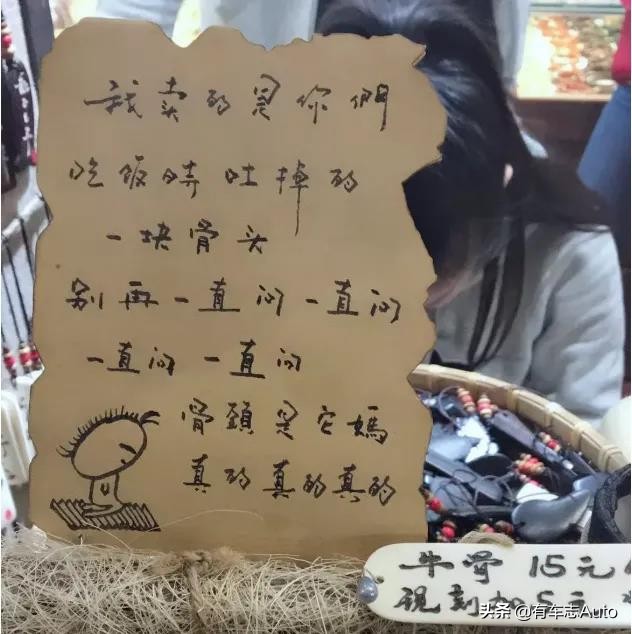 我卖的是你們
吃饭時吐掉的
一块骨头
别再一直问一直问
一直问 一直问
骨頭是它媽
真的真的真的
牛骨 15元
刻加5元
头条 @有车志Auto